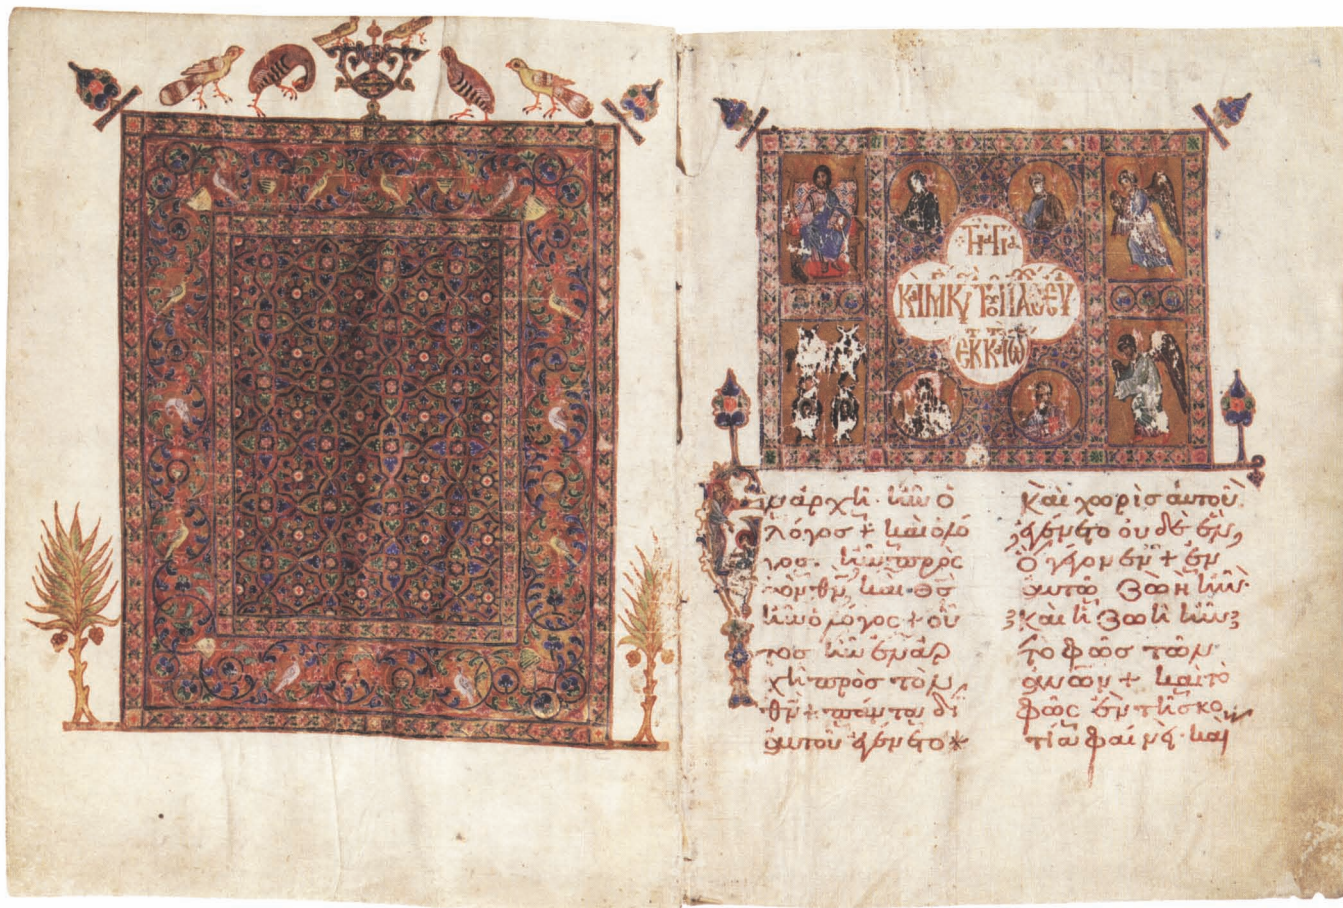 Τῇ ἁγίᾳ
καὶ μ κυ τοῦ πάσχ ευ
ἐκ τ κατ ιω
ἐν ἀρχῆ· ἦν ὁ
λόγος + καὶ ὁ λό
γος· ἦν πρὸς
τὸν θν̄· καὶ θς̄
ἦν ὁ λόγος + οὗ
τος ἦν ἐν ἀρ
χῆ πρὸς τὸν
θν̄ + πάντα δι
αυτοῦ ἐγένετο
Καὶ χωρὶς αυτοῦ
ἐγένετο οὐδὲ ἓν
ὃ γέγονεν + ἐν
αυτῶ ζωὴ ἦν·
καὶ ἡ ζωὴ ἦν
τὸ φῶς τῶν
ανων + καὶ τὸ
φῶς ἐν τῆ σκο
τία φαίνει· καὶ